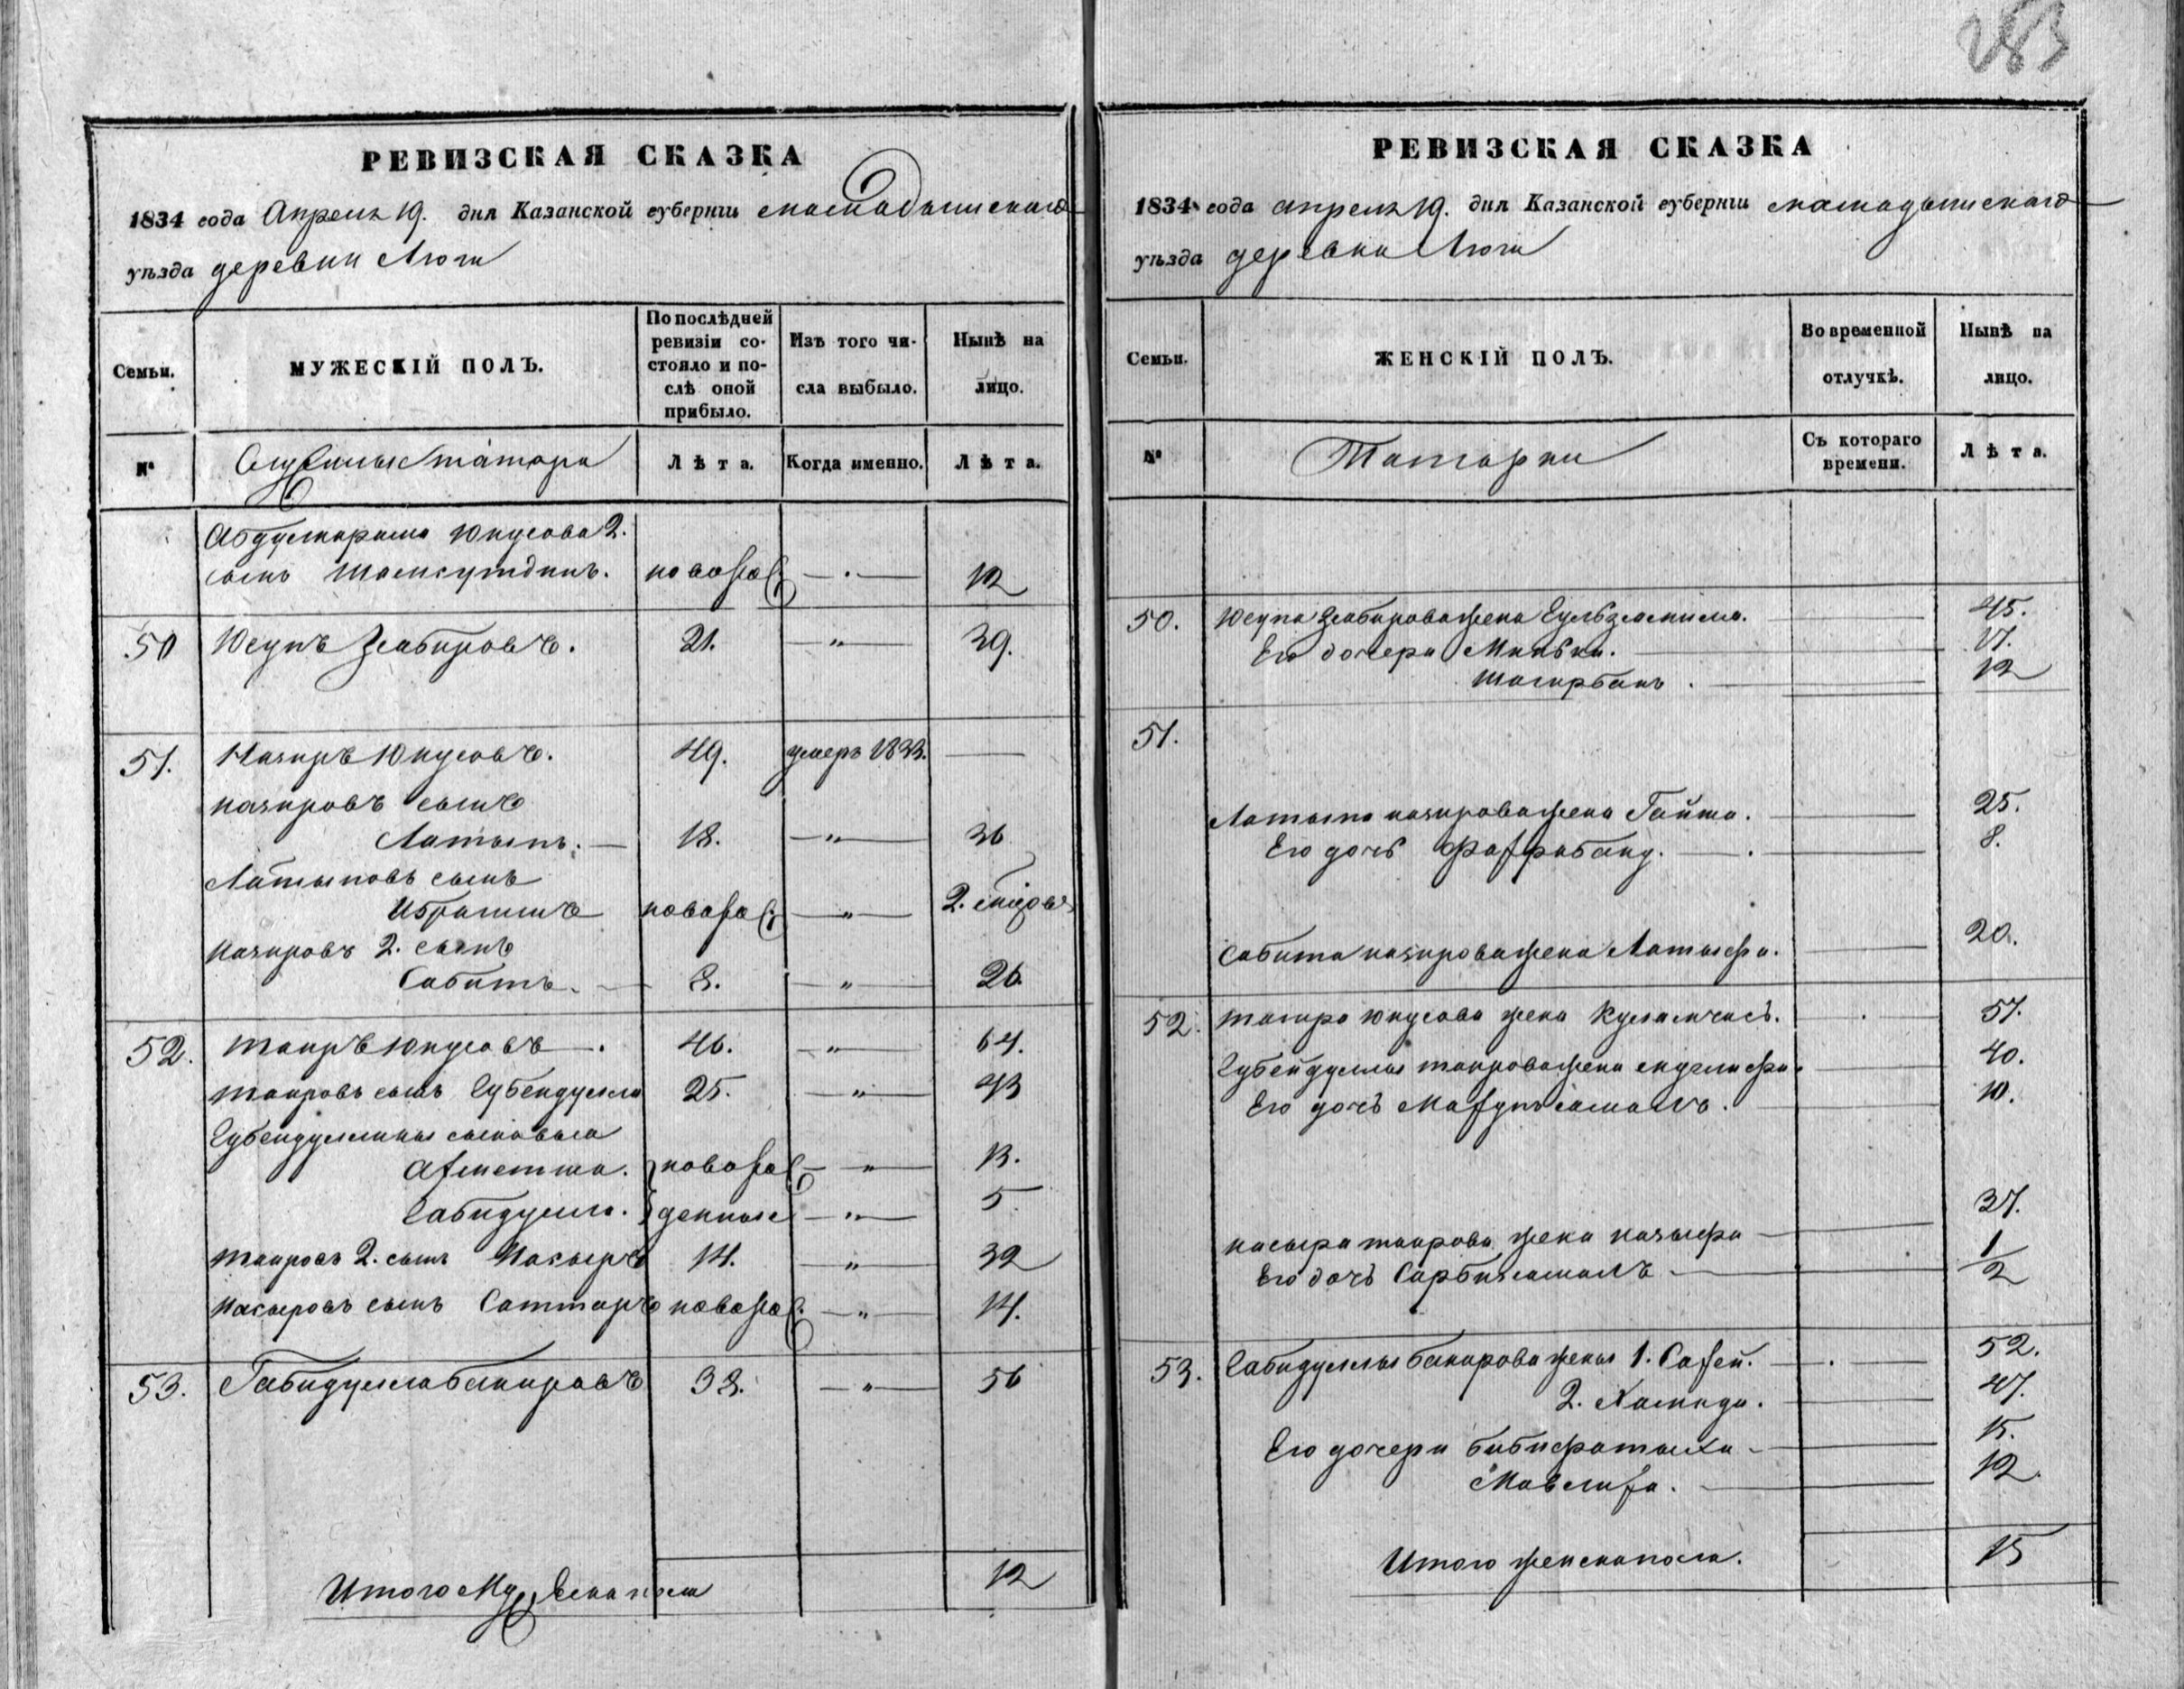 283
РЕВИЗСКАЯ СКАЗКА
1834 года Апреля 19. дня Казанской губерніи мамадышскаго
уѣзда деревни Люги
Семьи.
МУЖЕСКІЙ ПОЛЪ.
По послѣдней ревизіи состояло и послѣ оной прибыло.
Изъ того числа выбыло.
Нынѣ на лицо.
№
Служилые татара
Лѣта.
Когда именно.
Лѣта.
Абдулкарима Юнусова 2.
сынъ Шамсутдинъ. новорож — 12
50 Юсупъ Забировъ. 21. — " — 39.
51. Назиръ Юнусовъ. 49. умеръ 1833. —
Назировъ сынъ
Латыпъ. — 18. — " — 36
Латыповъ сынъ
Ибрагимъ новорож — " —
Назировъ 2. сынъ
Сабитъ. — 8. — " — 26.
52. Таиръ Юнусовъ. 46. — " — 64.
Таировъ сынъ Губейдулла 25. — " — 43
Губейдуллины сыновья
Ахметша. новорож — " — 13.
Габидулла. денные — " — 5
Таировъ 2. сынъ Насыръ 14. — " — 32
Насыровъ сынъ Саттаръ новорож. — " — 14.
53. Габидулла Бакировъ 38. — " — 56
Итого Мужеска пола 12
РЕВИЗСКАЯ СКАЗКА
1834 года апреля 19. дня Казанской губерніи мамадышскаго
уѣзда деревни Люги
Семьи.
ЖЕНСКІЙ ПОЛЪ.
Во временной отлучкѣ.
Нынѣ на лицо.
№
Татарки
Съ котораго времени.
Лѣта.
50. Юсупа Забирова жена 45.
Его дочери 17.
12
51.
Латыпа Назирова жена Гайша. 25.
Его дочь 8.
Сабита Назирова жена Латыфа. 20.
52. Тагира Юнусова жена 57.
Губейдуллы Таирова жена 40.
Его дочь 10.
Насыра Таирова жена Назыфа 37.
Его дочь Сарбижамалъ 1/2
53. Габидуллы Бакирова жены 1. 52.
2. Хамида. 47.
Его дочери Бибифатыха 15.
12.
Итого женска пола. 15